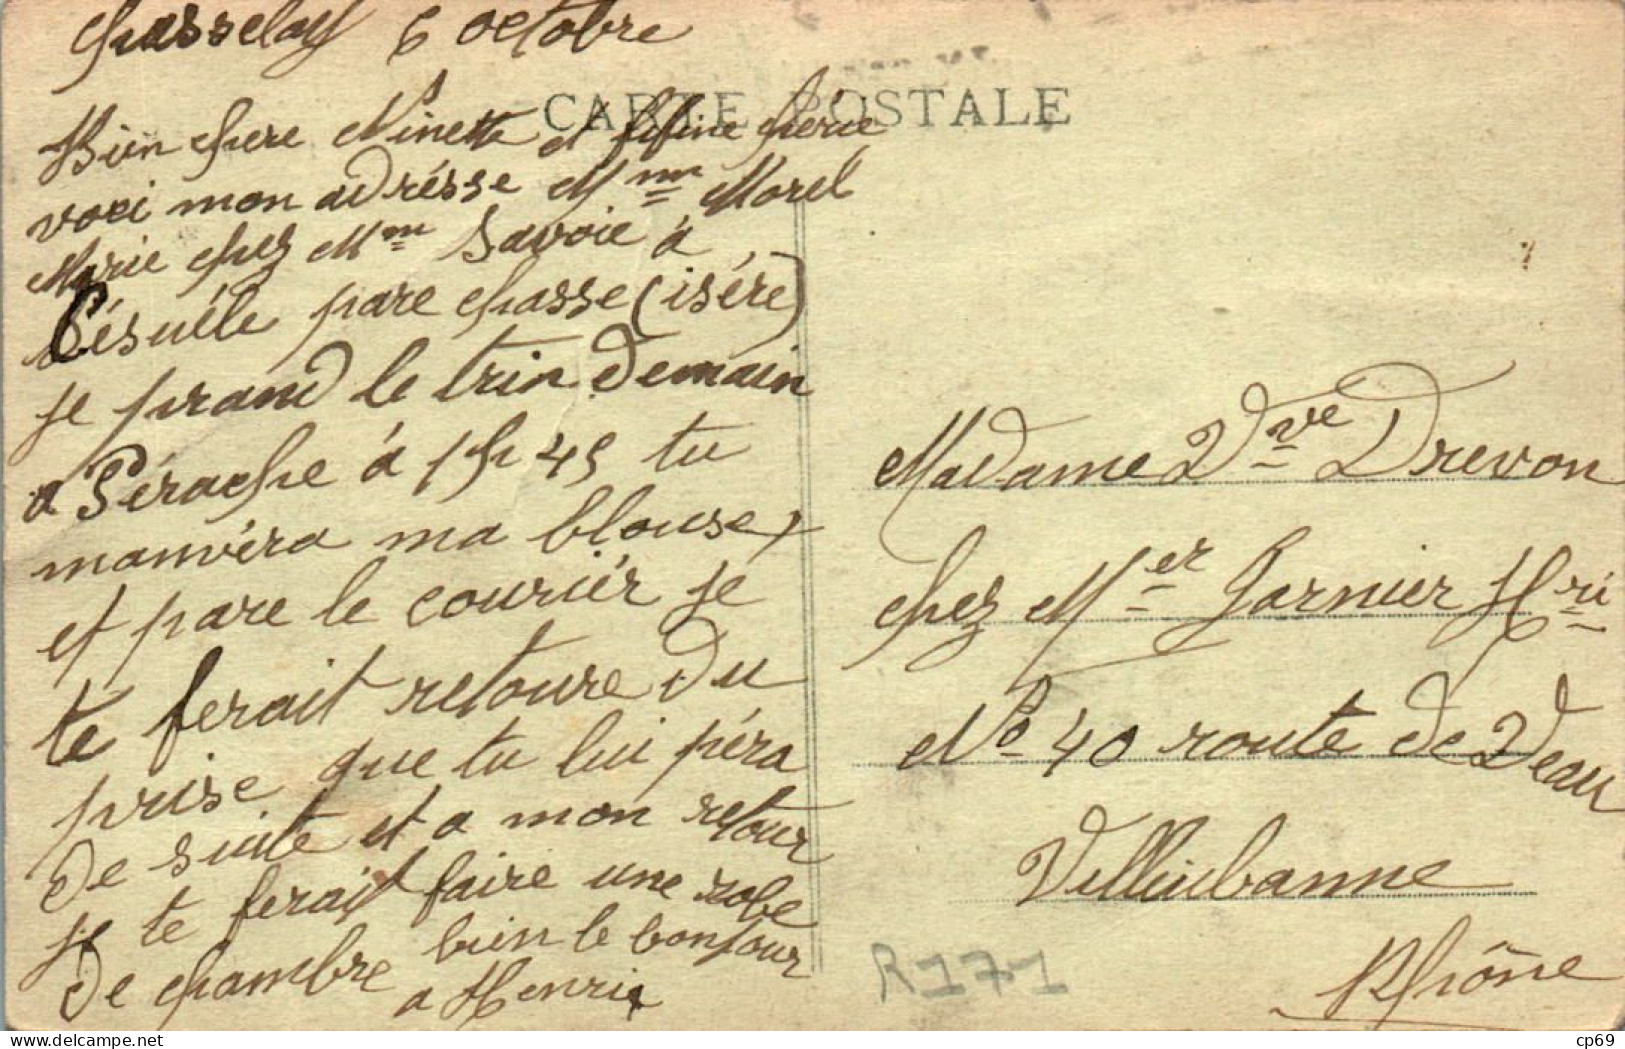 Chasselay 6 octobre
CARTE POSTALE
Bien chere Ninette et fifine chérie
voici mon adrésse Mme Morel
Marie chez Mme Savoie à
pare chasse (isére)
je prand le trin demain
a Pérache à 1h 45 tu
manvéra ma blouse
et pare le couriér je
te ferait retoure du
prise que tu lui péra
de suite et a mon retour
je te ferait faire une robe
de chambre bien le bonjour
a Henri
Madame Vve Drevon
chez Mer Garnier Hri
No 40 route de Veau
Villeubanne
Rhône
R171
cp69